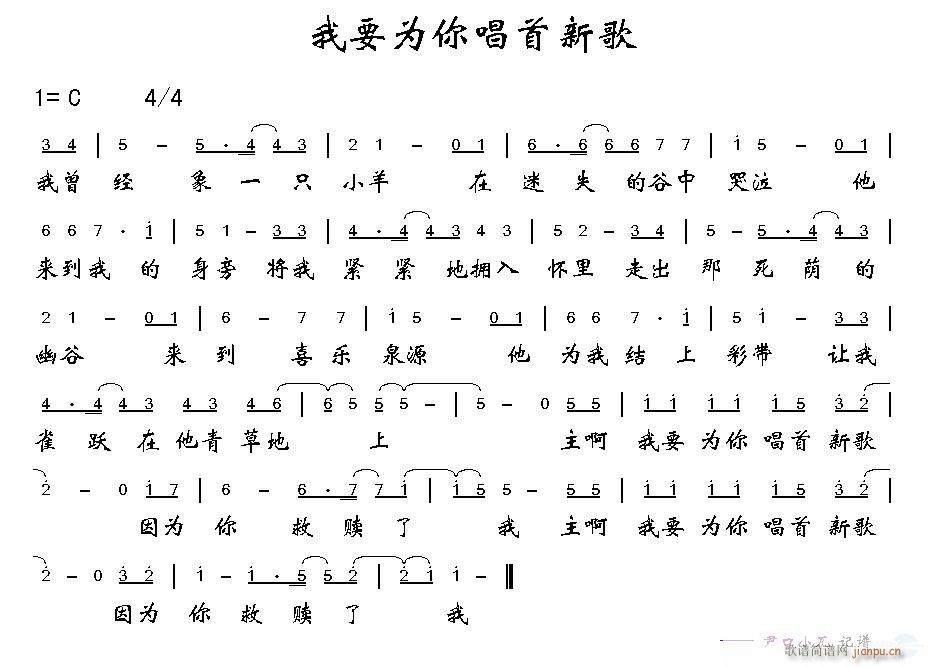 我要为你唱首新歌
1= C 4/4
3 4 | 5 - 5 · 4 4 3 | 2 1 - 0 1 | 6 · 6 6 6 7 7 | i 5 - 0 1 |
我曾 经 象 一 只 小 羊 在 迷 失 的谷中 哭泣 他
6 6 7 · i | 5 1 - 3 3 | 4 · 4 4 3 4 3 | 5 2 - 3 4 | 5 - 5 · 4 4 3 |
来到我 的 身旁 将我 紧 紧 地拥入 怀里 走出 那 死 荫 的
2 1 - 0 1 | 6 - 7 7 | i 5 - 0 1 | 6 6 7 · i | 5 i - 3 3 |
幽谷 来 到 喜 乐 泉源 他 为我 结 上 彩带 让我
4 · 4 4 3 4 3 4 6 | 6 5 5 5 - | 5 - 0 5 5 | i i i i i 5 3 2 |
雀 跃 在他青 草地 上 主啊 我要 为你 唱首 新歌
2 - 0 i 7 | 6 - 6 · 7 7 i | i 5 5 - 5 5 | i i i i i 5 3 2 |
因为 你 救 赎 了 我 主啊 我要 为你 唱首 新歌
2 - 0 3 2 | i - i · 5 5 2 | 2 i i - ‖
因为 你 救 赎 了 我
尹口小瓦 记谱
歌谱简谱网 jianpu.cn